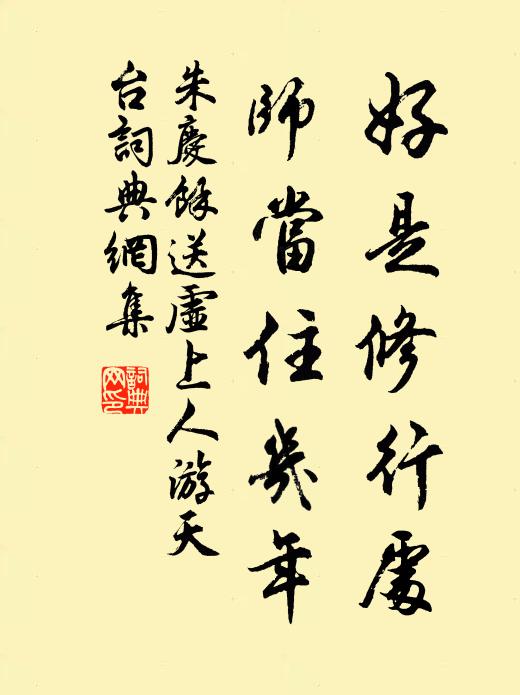 好是修行處
師當住幾年
朱慶餘送虛上人游天
台詞典網集
詞典网印